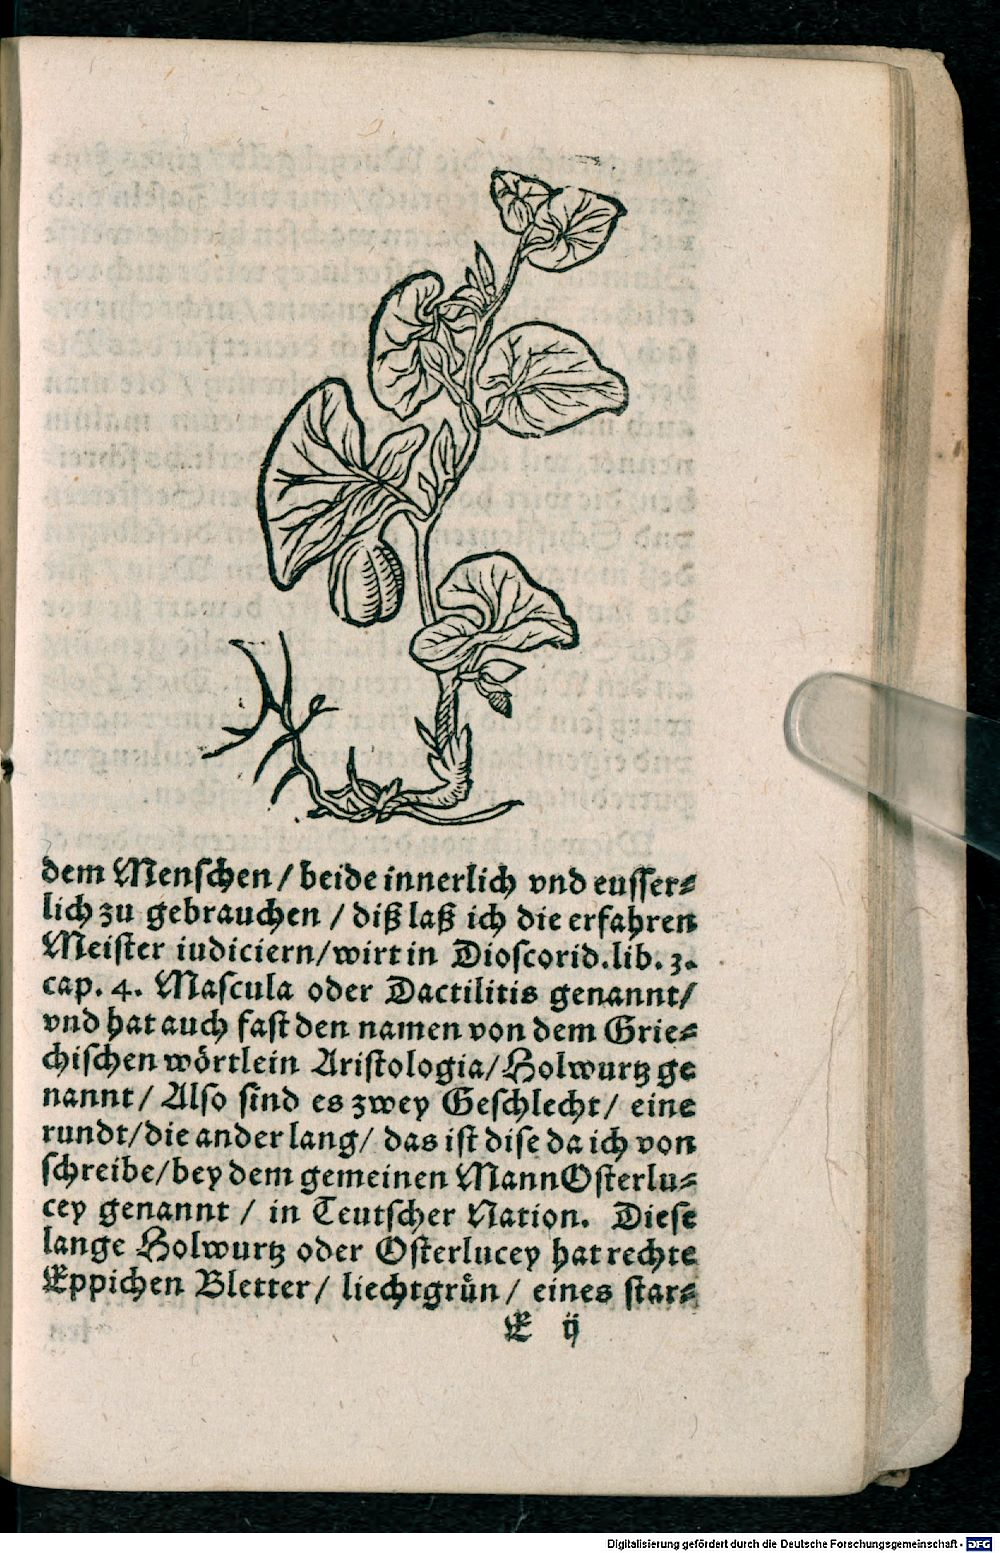 dem Menschen / beide innerlich vnd eusser⸗
lich zu gebrauchen / diß laß ich die erfahren
Meister iudiciern/wirt in Dioscorid.lib. 3.
cap. 4. Mascula oder Dactilitis genannt/
vnd hat auch fast den namen von dem Grie⸗
chischen wörtlein Aristologia/Holwurtz ge
nannt/ Also sind es zwey Geschlecht/ eine
rundt/die ander lang/ das ist dise da ich von
schreibe/bey dem gemeinen Mann Osterlu⸗
cey genannt / in Teutscher Nation. Diese
lange Holwurtz oder Osterlucey hat rechte
Eppichen Bletter/ liechtgrün/ eines star⸗
E ij
Digitalisierung gefördert durch die Deutsche Forschungsgemeinschaft - DFG